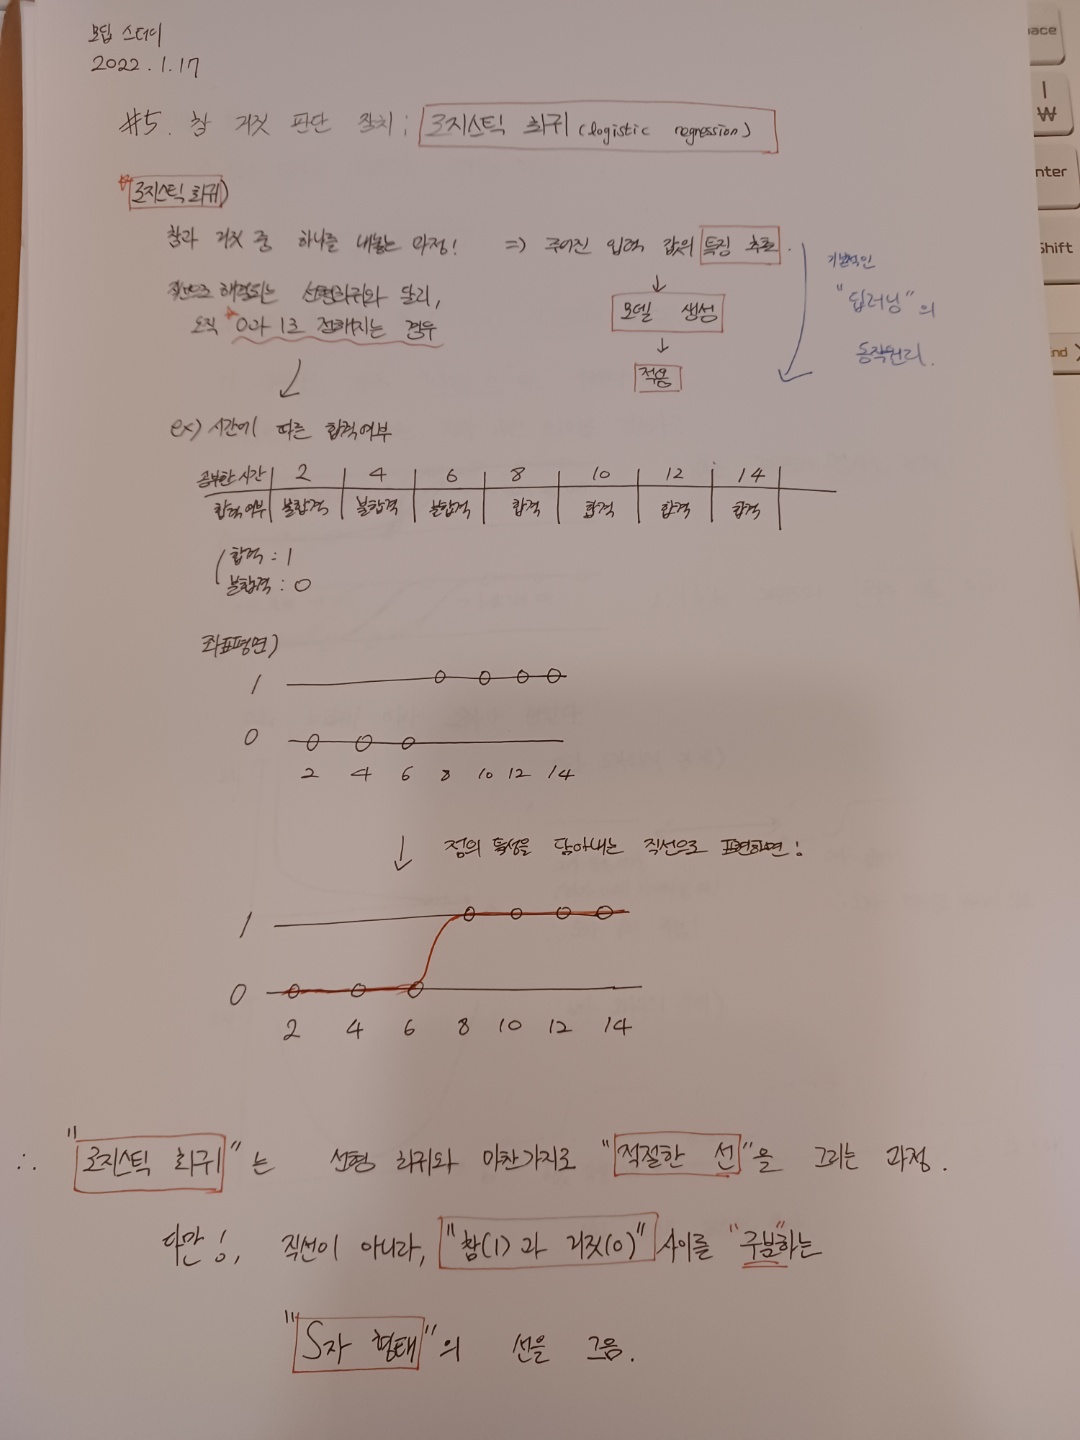 모딥 스터디
2022.1.17
#5. 참 거짓 판단 장치 : 로지스틱 회귀 (logistic regression)
로지스틱 회귀)
참과 거짓 중 하나를 내놓는 과정! => 주어진 입력 값의 특징 추출.
직선으로 해결되는 선형회귀와 달리,
오직 0과 1로 정해지는 경우
↓
모델 생성
↓
적용
기본적인
"딥러닝"의
동작원리.
ex) 시간에 따른 합격여부
공부한 시간 2 4 6 8 10 12 14
합격여부 불합격 불합격 불합격 합격 합격 합격 합격
합격 : 1
불합격 : 0
좌표평면)
1
0
2 4 6 8 10 12 14
↓ 점의 특성을 담아내는 직선으로 표현하면!
1
0
2 4 6 8 10 12 14
∴ "로지스틱 회귀"는 선형 회귀와 마찬가지로 "적절한 선"을 그리는 과정.
다만!, 직선이 아니라, "참(1)과 거짓(0)" 사이를 "구분"하는
"S자 형태"의 선을 그음.